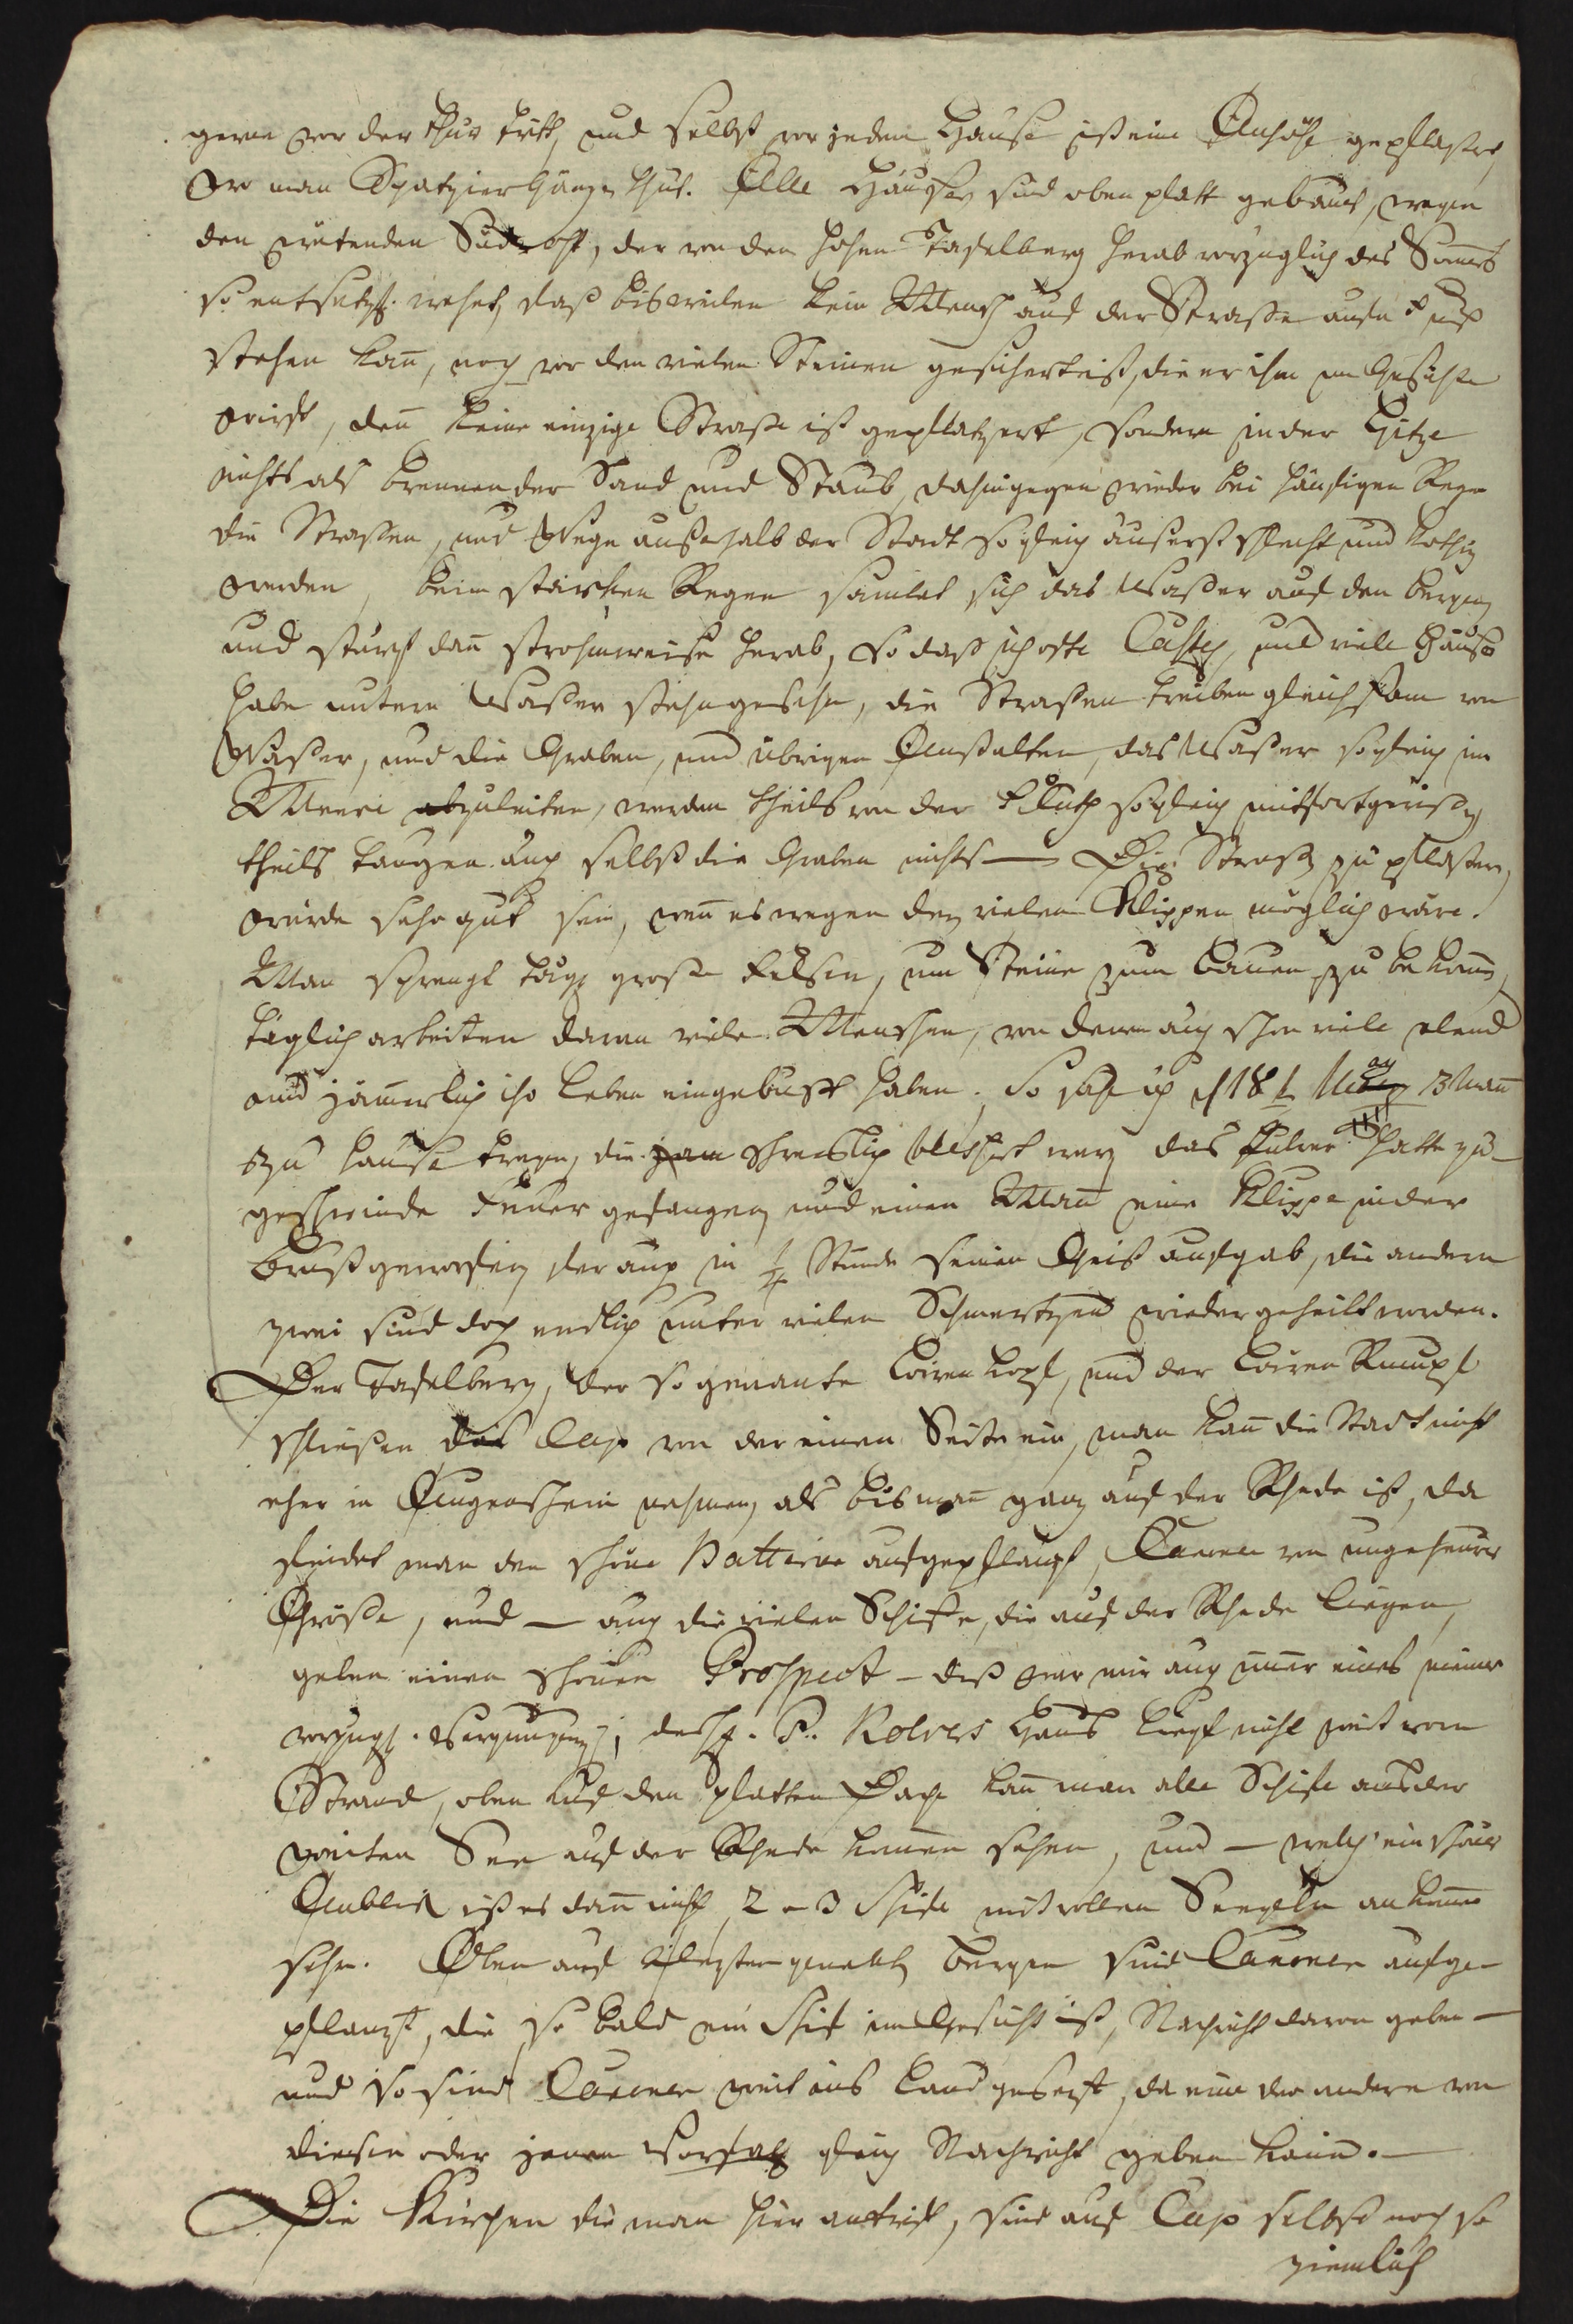 gerne vor der thür tritt, und selbst vor jedem Hause ist eine Anhöhe gepflastert,
wo man Spatziergänge thut. Alle Häuser sind oben platt gebaut, wegen
den wütenden Südost, der von den hohen Tafelberg herab vorzüglich des Somers
so entsetzl. wehet, daß bisweilen kein Mensch auf der Straße aufn Fuß
stehen kan, noch vor den vielen Steinen gesichert ist, die er ihm im Gesichte
wirft, den keine einzige Straße ist gepflatzert, sondern in der Hitze
nichts als brennender Sand und Staub, dahingegen wieder bei häufigen Regen
die Straßen, und Wege außerhalb der Stadt sogleich äußerst schlecht und kothig
werden, beim starken Regen samlet sich das Waßer auf den bergen
und stürzt dan strohmweise herab, so daß ich ofte Castel, und viele Häuser
habe unterm Waßer stehn gesehn, die Straßen treiben gleichsam von
Waßer, und die Graben, und übrigen Anstalten, das Waßer sogleich im
Meere abzuleiten, werden theils von der Fluth sogleich mitfortgerißen,
theils taugen auch selbst die Graben nichts — Die Straßen zu pflastern,
würde sehr gut sein, wen es wegen den vielen Klippen möglich wäre.
Man sprengt tägl. große Felsen, um Steine zum bauen zu bekomen,
täglich arbeiten daran viele Menschen, von denen auch schon viele elend
und jämerlich ihr Leben eingebüßt haben. So sahe ich 3 Man
zu hause tragen, die schrecklich blessirt waren das Pulver hatte zu
geschwinde Feuer gefangen, und einen Man eine Klippe in der
brust geworfen, der auch in ¼ Stunde seinen Geist aufgab, die andern
zwei sind doch endlich unter vielen Schmertzen wieder geheilt worden.
Der Tafelberg, der so genante Löwen Kopf, und der Löwen Rumpf
schließen das Cap von der einen Seite ein, man kan die Stadt nicht
eher in Augenschein nehmen, als bis man ganz auf der Rhede ist, da
findet man den schöne Batterien aufgepflanzt, Canonen von ungeheurer
Größe, und — auch die vielen Schiffe, die auf der Rhede liegen,
geben einen schönen Prospect — dis war mir auch imer eines meiner
vorzügl. Vergnügungen, des H. P. Kolvers Haus liegt nicht weit vom
Strand, oben auf den platten Dache kan man alle Schiffe aus der
weiten See auf der Rhede komen sehen, und — welch ein schöner
Anblick ist es dan nicht, 2 – 3 Schiffe mit vollen Seegeln ankomen
sehn. Oben auf letzten gemelten bergen sind Canonen aufge-
pflanzt, die so bald ein Schif im Gesicht ist, Nachricht davon geben —
und so sind Canonen weit ins Land gesetzt, da eine der andern von
diesen oder jenen Vorfall gleich Nachricht geben kann. —
Die Kirchen die man hier antrift, sind auf Cap selbst noch so
ziemlich